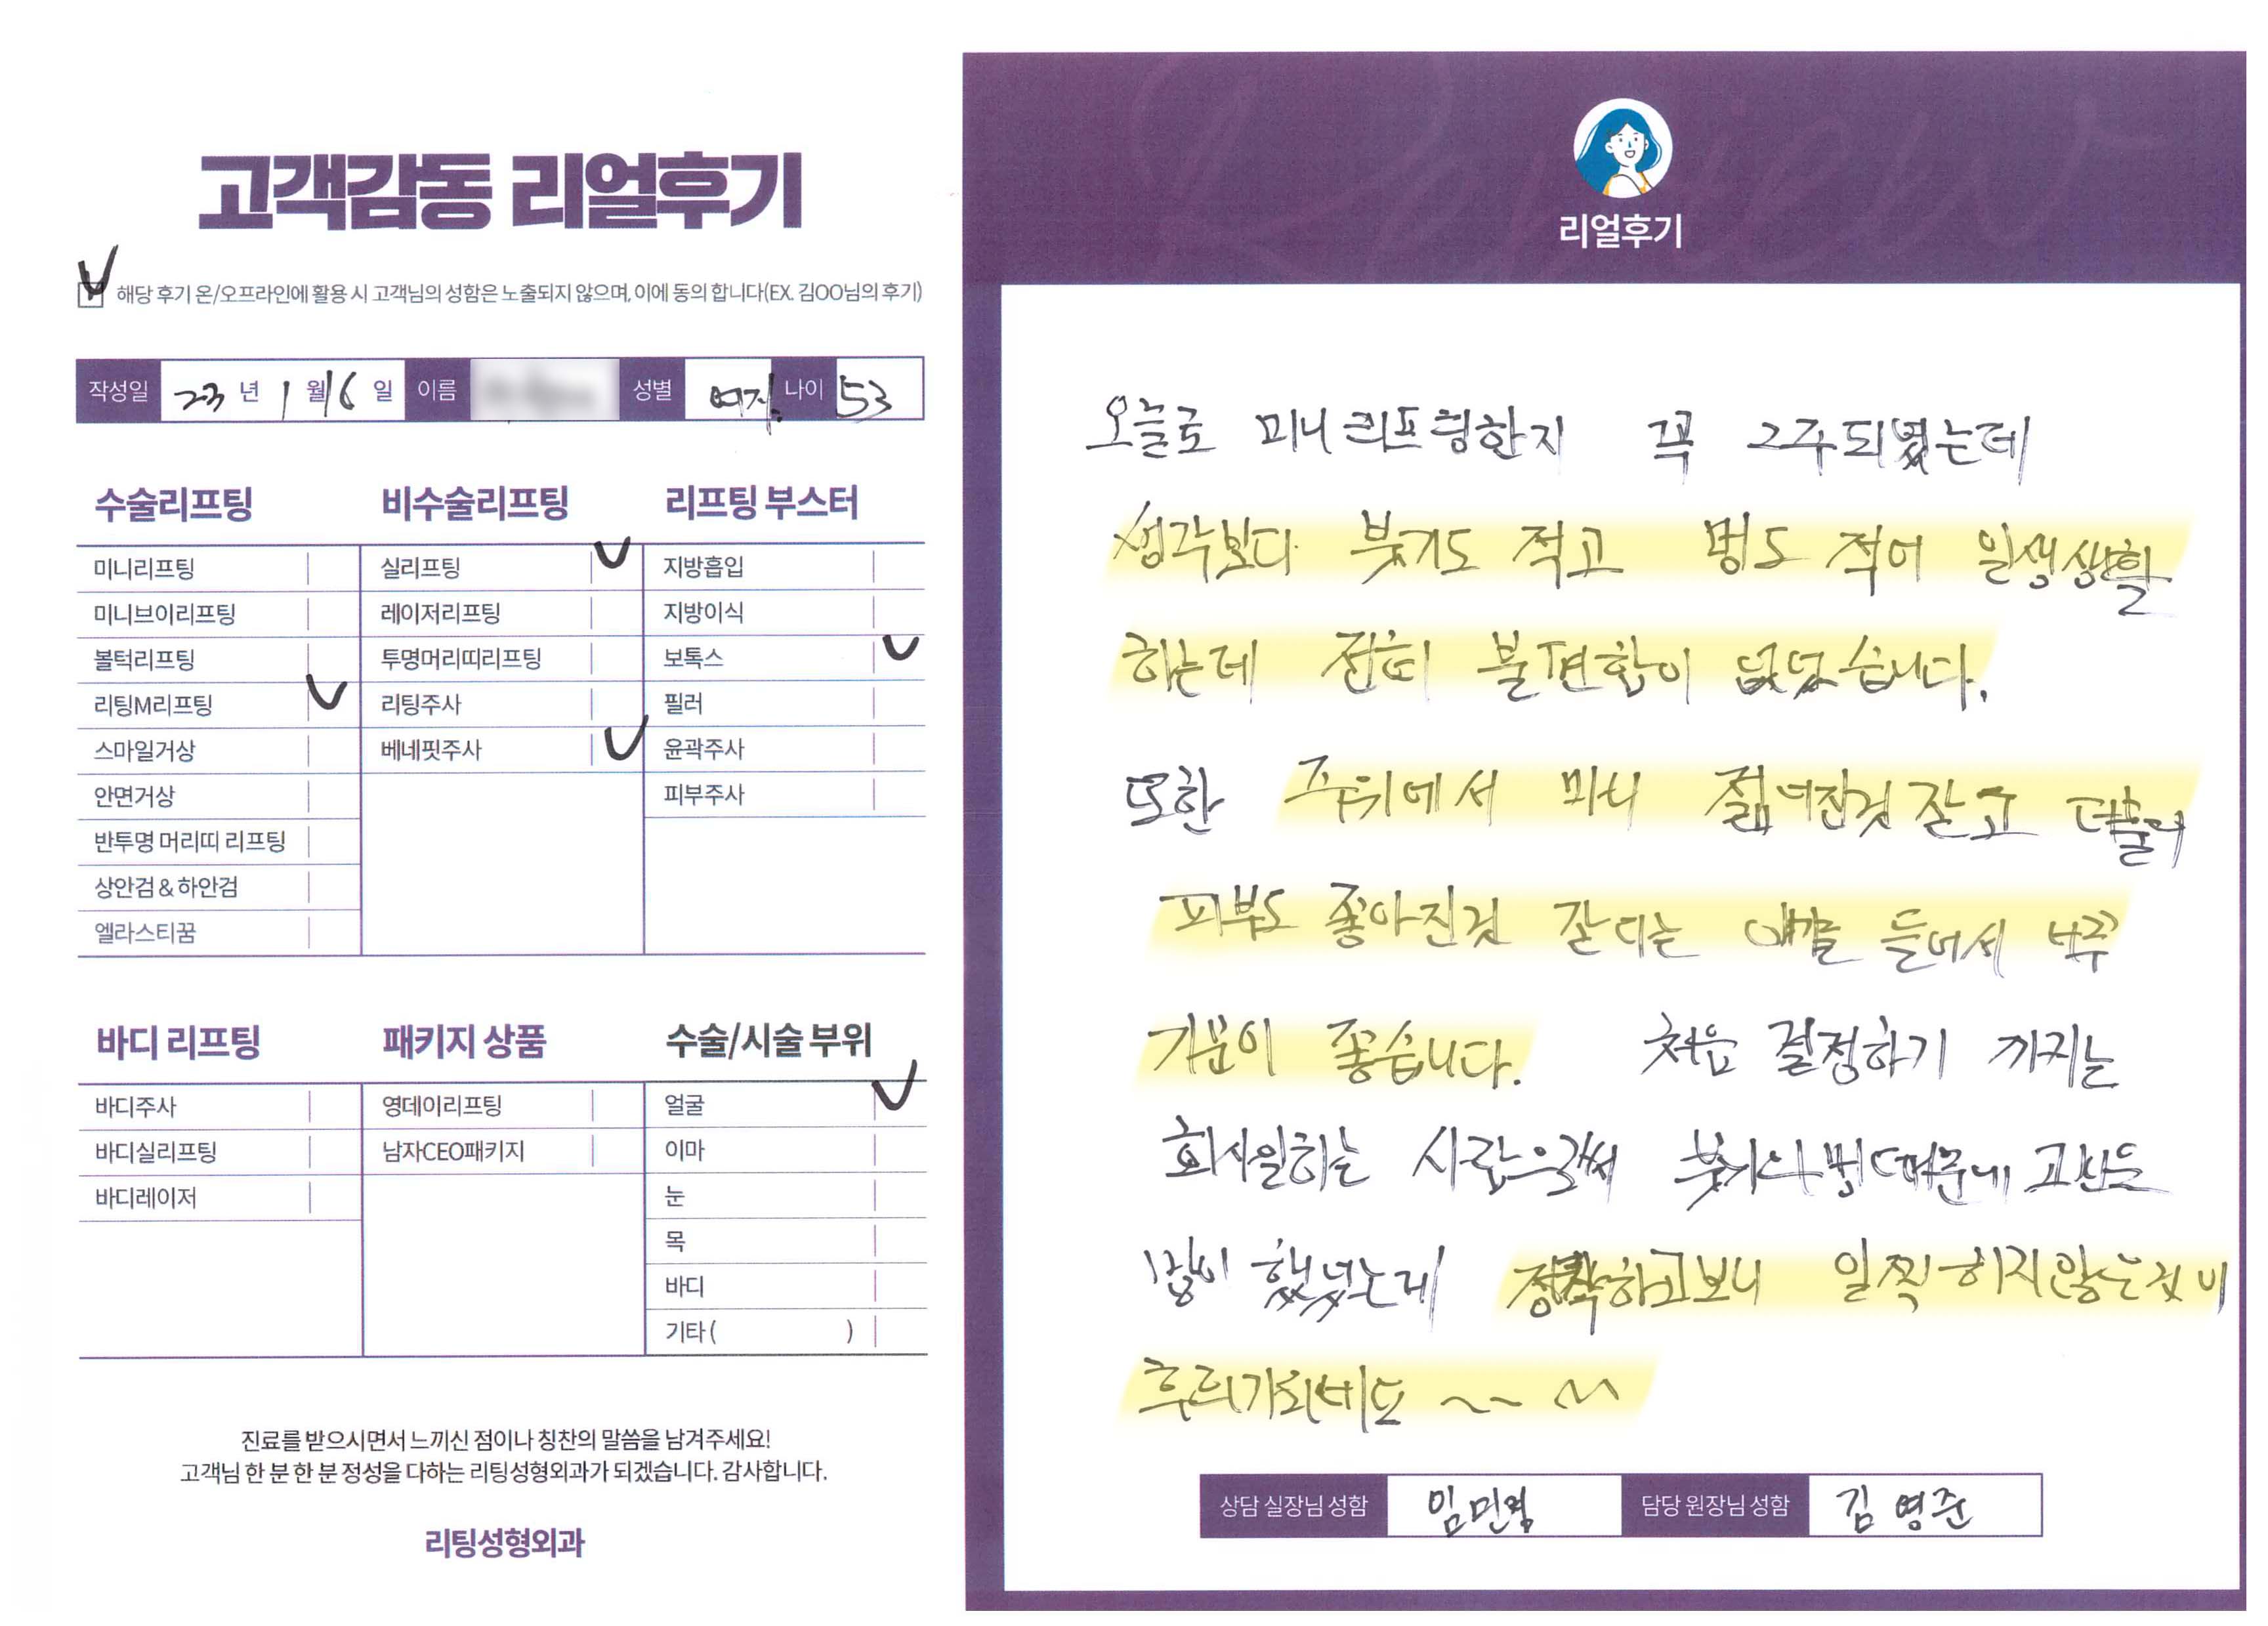 고객감동 리얼후기
해당 후기 온/오프라인에 활용 시 고객님의 성함은 노출되지 않으며, 이에 동의 합니다(EX. 김OO님의 후기)
작성일 23 년 1 월 16 일 이름 성별 여자. 나이 53
수술리프팅 비수술리프팅 리프팅 부스터
미니리프팅 실리프팅 지방흡입
미니브이리프팅 레이저리프팅 지방이식
볼턱리프팅 투명머리띠리프팅 보톡스
리팅M리프팅 리팅주사 필러
스마일거상 베네핏주사 윤곽주사
안면거상 피부주사
반투명 머리띠 리프팅
상안검 & 하안검
엘라스티꿈
바디 리프팅 패키지 상품 수술/시술 부위
바디주사 영데이리프팅 얼굴
바디실리프팅 남자CEO패키지 이마
바디레이저 눈
목
바디
기타 ( )
진료를 받으시면서 느끼신 점이나 칭찬의 말씀을 남겨주세요!
고객님 한 분 한 분 정성을 다하는 리팅성형외과가 되겠습니다. 감사합니다.
리팅성형외과
리얼후기
오늘로 미니리프팅한지 꼭 2주되였는데
생각보다 붓기도 적고 멍도 적어 일생생활
하는데 전혀 불편함이 없었습니다.
또한 주위에서 젊어진것 같고 더불어
피부도 좋아진것 같다는 얘길 들어서 너무
기분이 좋습니다. 처음 결정하기 까지는
회사일하는 사람으로써 붓기나 멍때문에 고민도
많이 했었는데 하고보니 일찍 하지않는것이
후회가되네요 ~~ ^^
상담 실장님 성함 임민영 담당 원장님 성함 김영준